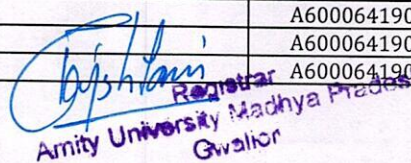 A600064190
A600064190
A600064190
Registrar
Amity University Madhya Prades
Gwalior